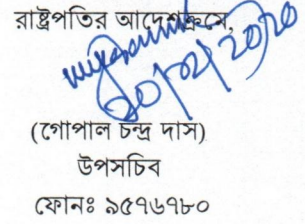 রাষ্ট্রপতির আদেশক্রমে,
(গোপাল চন্দ্র দাস)
উপসচিব
ফোনঃ ৯৫৭৬৭৮০